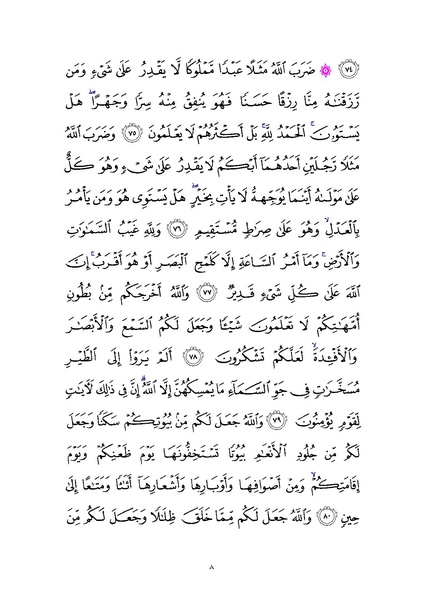 ٧٤ ۞ ضَرَبَ ٱللَّهُ مَثَلًا عَبْدًا مَّمْلُوكًا لَّا يَقْدِرُ عَلَىٰ شَىْءٍ وَمَن
رَّزَقْنَـٰهُ مِنَّا رِزْقًا حَسَنًا فَهُوَ يُنفِقُ مِنْهُ سِرًّا وَجَهْرًا ۖ هَلْ
يَسْتَوُۥنَ ۚ ٱلْحَمْدُ لِلَّهِ ۚ بَلْ أَكْثَرُهُمْ لَا يَعْلَمُونَ ٧٥ وَضَرَبَ ٱللَّهُ
مَثَلًا رَّجُلَيْنِ أَحَدُهُمَآ أَبْكَمُ لَا يَقْدِرُ عَلَىٰ شَىْءٍ وَهُوَ كَلٌّ
عَلَىٰ مَوْلَىٰهُ أَيْنَمَا يُوَجِّههُّ لَا يَأْتِ بِخَيْرٍ ۖ هَلْ يَسْتَوِى هُوَ وَمَن يَأْمُرُ
بِٱلْعَدْلِ ۙ وَهُوَ عَلَىٰ صِرَٰطٍ مُّسْتَقِيمٍ ٧٦ وَلِلَّهِ غَيْبُ ٱلسَّمَـٰوَٰتِ
وَٱلْأَرْضِ ۚ وَمَآ أَمْرُ ٱلسَّاعَةِ إِلَّا كَلَمْحِ ٱلْبَصَرِ أَوْ هُوَ أَقْرَبُ ۚ إِنَّ
ٱللَّهَ عَلَىٰ كُلِّ شَىْءٍ قَدِيرٌ ٧٧ وَٱللَّهُ أَخْرَجَكُم مِّنۢ بُطُونِ
أُمَّهَـٰتِكُمْ لَا تَعْلَمُونَ شَيْـًٔا وَجَعَلَ لَكُمُ ٱلسَّمْعَ وَٱلْأَبْصَـٰرَ
وَٱلْأَفْـِٔدَةَ ۙ لَعَلَّكُمْ تَشْكُرُونَ ٧٨ أَلَمْ يَرَوْا۟ إِلَى ٱلطَّيْرِ
مُسَخَّرَٰتٍ فِى جَوِّ ٱلسَّمَآءِ مَا يُمْسِكُهُنَّ إِلَّا ٱللَّهُ ۗ إِنَّ فِى ذَٰلِكَ لَـَٔايَـٰتٍ
لِّقَوْمٍ يُؤْمِنُونَ ٧٩ وَٱللَّهُ جَعَلَ لَكُم مِّنۢ بُيُوتِكُمْ سَكَنًا وَجَعَلَ
لَكُم مِّن جُلُودِ ٱلْأَنْعَـٰمِ بُيُوتًا تَسْتَخِفُّونَهَا يَوْمَ ظَعْنِكُمْ وَيَوْمَ
إِقَامَتِكُمْ ۙ وَمِنْ أَصْوَافِهَا وَأَوْبَارِهَا وَأَشْعَارِهَآ أَثَـٰثًا وَمَتَـٰعًا إِلَىٰ
حِينٍ ٨٠ وَٱللَّهُ جَعَلَ لَكُم مِّمَّا خَلَقَ ظِلَـٰلًا وَجَعَلَ لَكُم مِّنَ
٨